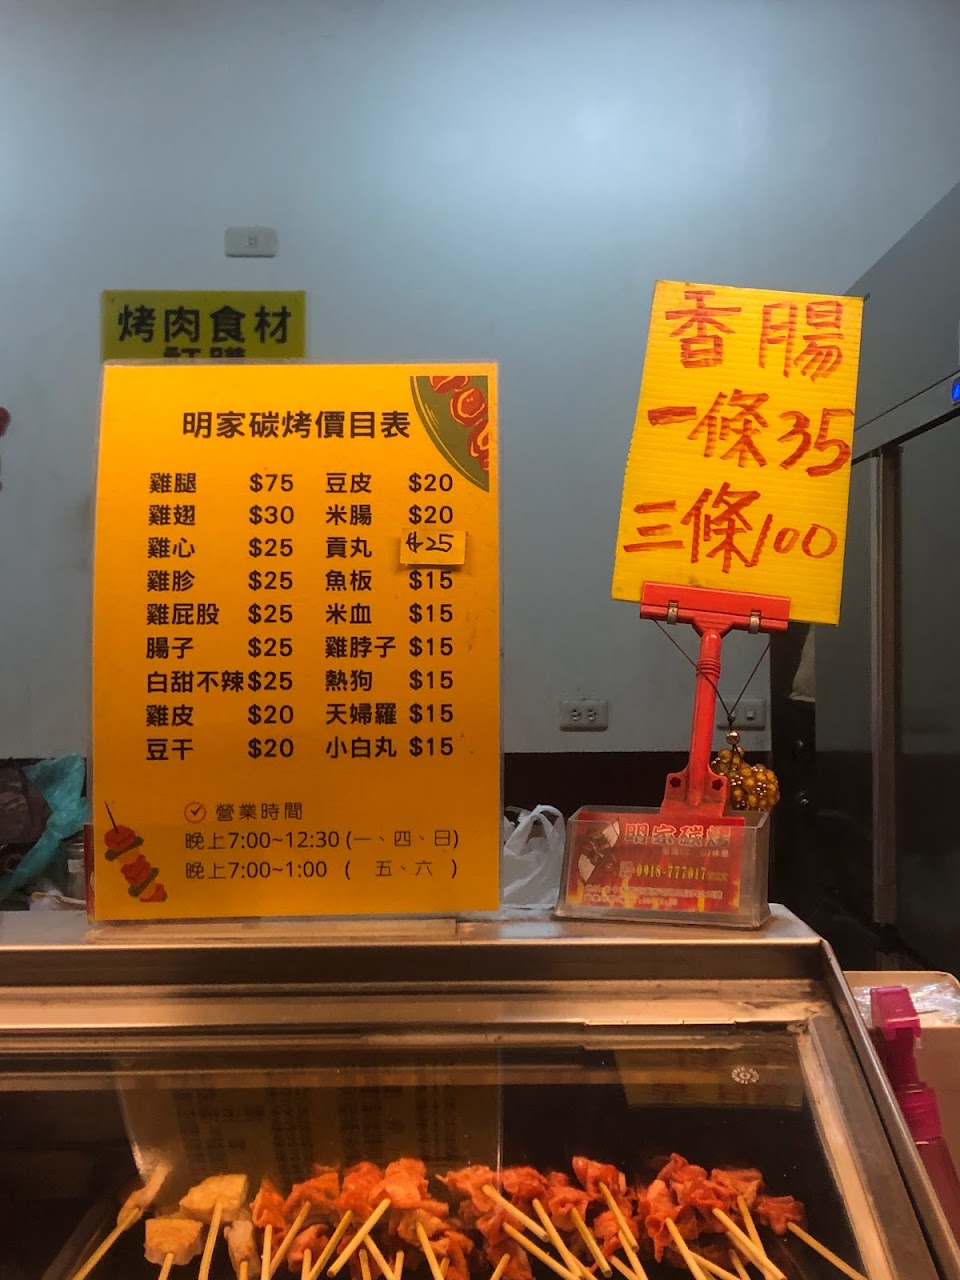 烤肉食材
訂購
明家碳烤價目表
雞腿 $75 豆皮 $20
雞翅 $30 米腸 $20
雞心 $25 貢丸 $25
雞胗 $25 魚板 $15
雞屁股 $25 米血 $15
腸子 $25 雞脖子 $15
白甜不辣 $25 熱狗 $15
雞皮 $20 天婦羅 $15
豆干 $20 小白丸 $15
營業時間
晚上7:00~12:30 (一、四、日)
晚上7:00~1:00 ( 五、六 )
香腸
一條35
三條100
明家碳烤
0918-777017